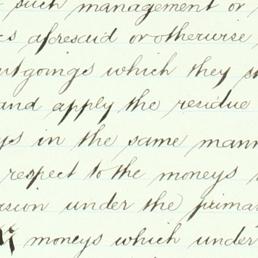 such management or
aforesaid or otherwise
outgoings which they
and apply the residue
in the same
respect to the moneys
under the
moneys which under